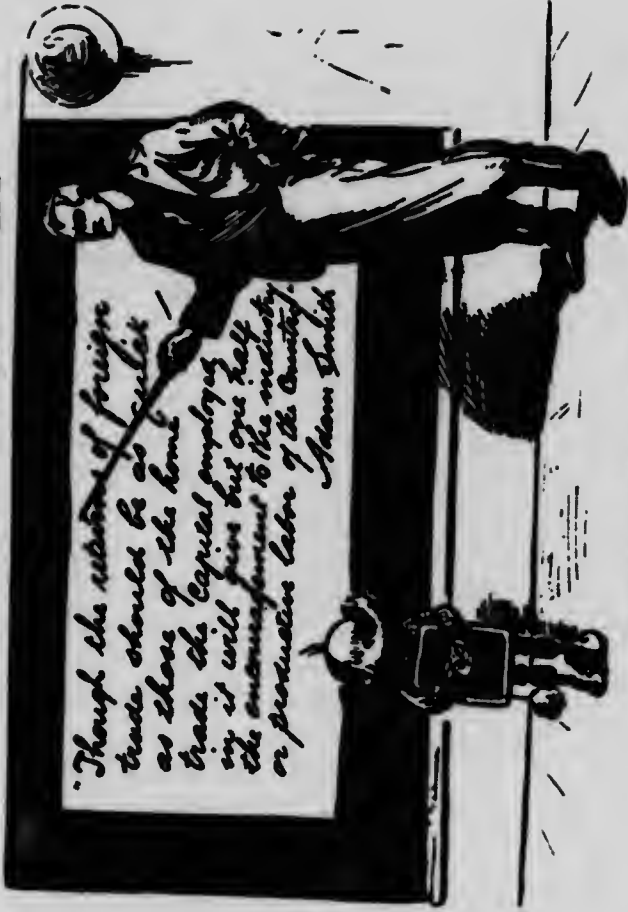 "Though the returns of foreign
trade should be as quick
as those of the home
trade the Capital employed
in it will give but one half
the encouragement to the industry
or productive labor of the Country."
Adam Smith